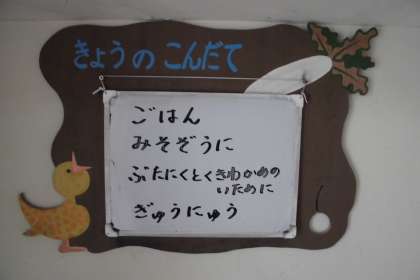 きょうのこんだて
ごはん
みそぞうに
ぶたにくとくきわかめの
いために
ぎゅうにゅう